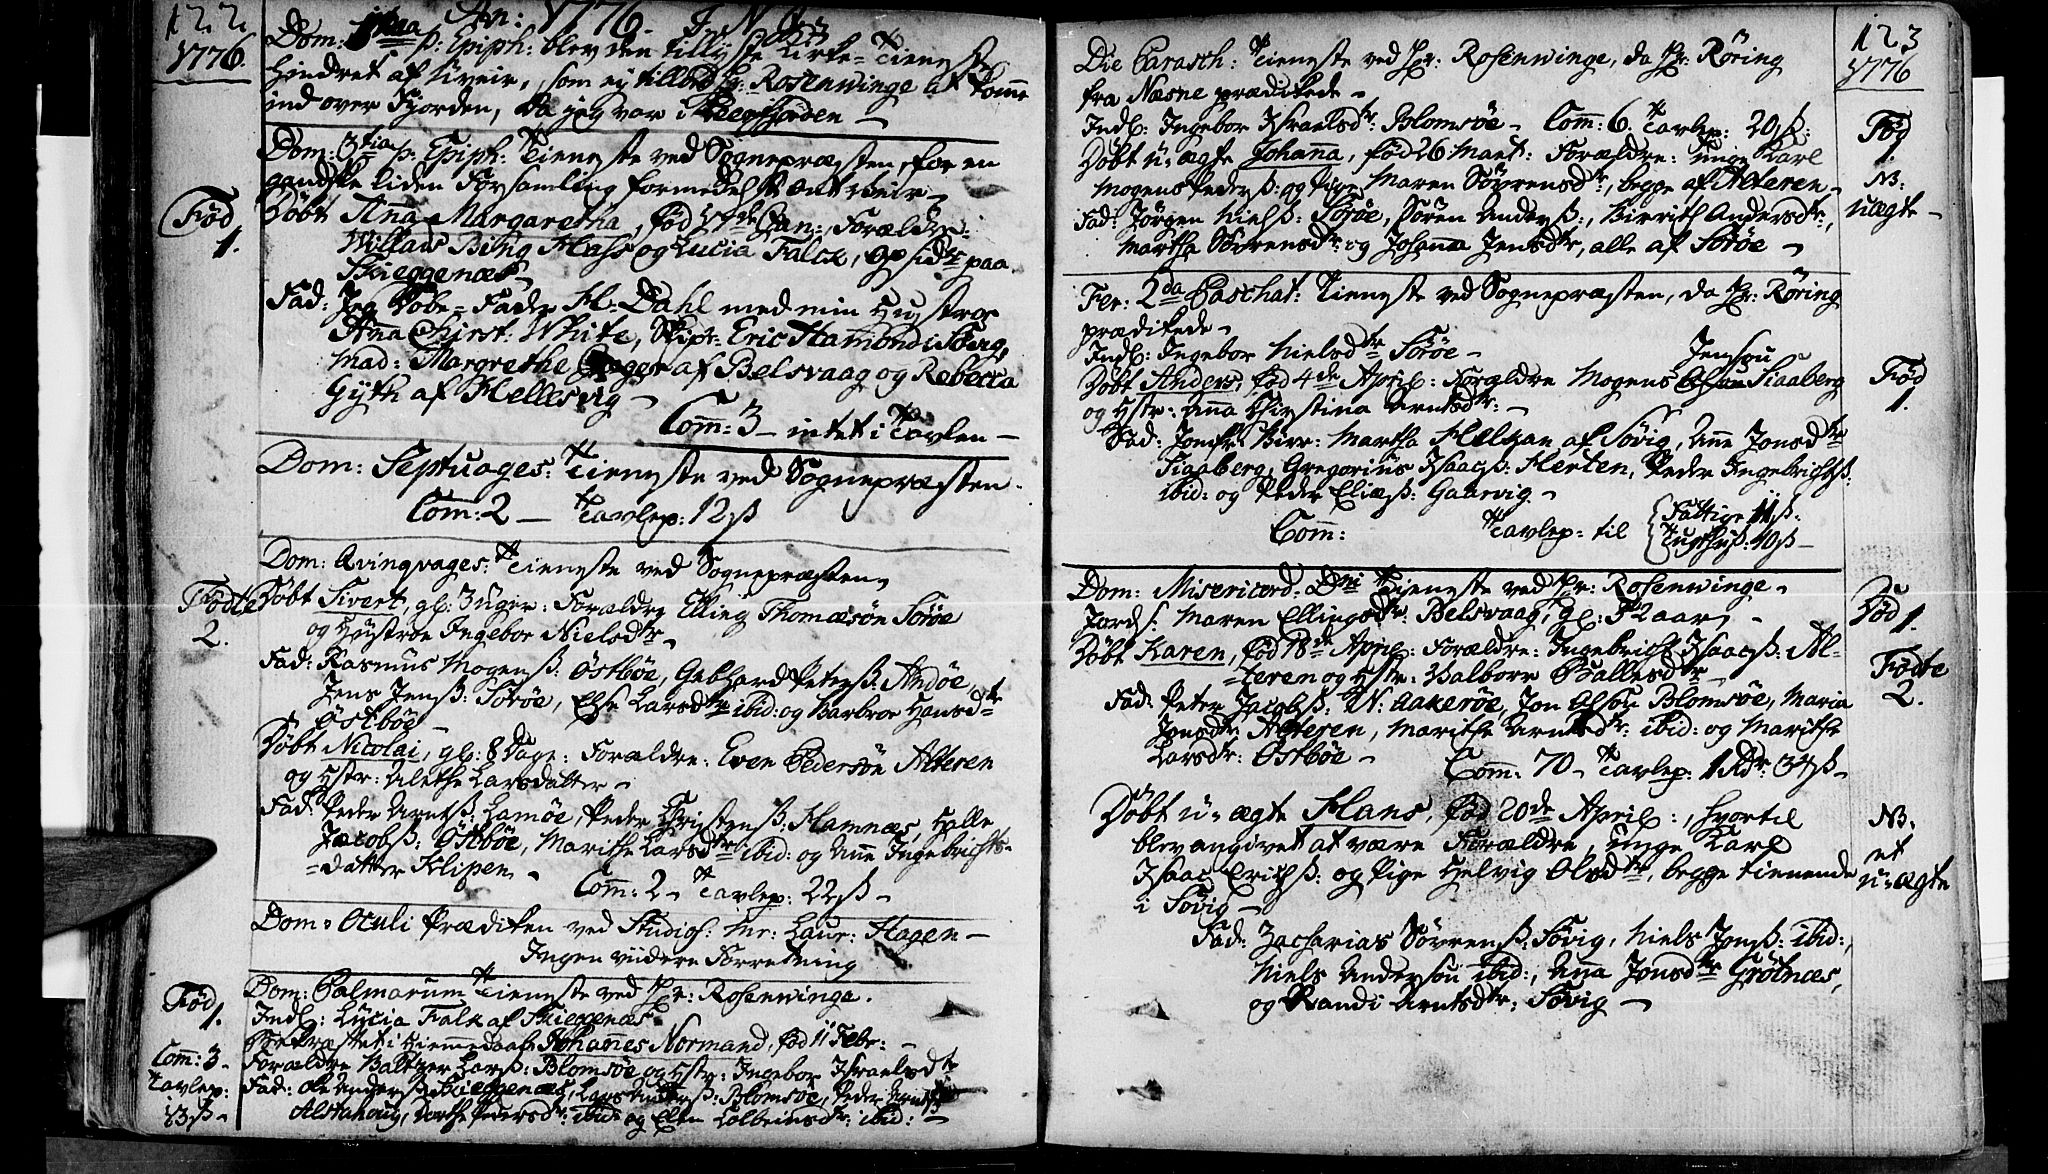 122
1776.
An: 1776. I. N. J.
Dom: 1ma p: Epiph: blev den tillyste Kirke-Tieneste
hindret af Uveir, som ej tillod Hr: Rosenwinge at komme
ind over Fjorden, da jeg var i
Dom: 3tia p. Epiph: Tieneste ved Sognepræsten, for en
gandske liden Forsamling formedelst ont Veir
Fød
1.
Døbt Anna Margaretha, fød 17de Jan: Forældre:
Willats Bing Hass og Lucia Falck, Opsidr paa
Skieggenæs
Fad: Jeg Døbe-Fader H. Dahl med min Hustroe
Anna Christ: White, Skipr: Eric Hamond i Søvig,
Mad: Margrethe af Belsvaag og Rebecca
Gyth af Hellesvig
Com̄: 3 intet i Tavlen
Dom: Septuages: Tieneste ved Sognepræsten.
Com: 2 Tavlep: 12 ß
Dom: Qvinqvages: Tieneste ved Sognepræsten
Fødte
2.
Døbt Sivert, gl: 3 Uger: Forældre Elling Thomæsøn Sørøe
og Høystroe Ingebor Nielsdtr
Fad: Rasmus Mogenß: Østbøe, Gebhard Peterß: Andøe,
Jens Jenß: Sørøe, Else Larsdtr ibid: og Barbroe Hansdtr
Østbøe
Døbt Nicolai, gl: 8 Dage: Forældre: Even Pedersøn Alteren
og Hstr: Alethe Larsdatter
Fad: Peder Arntß: Lamøe, Peder Christenß: Hamnæs, Halle
Jacobß: Østbøe, Marithe Larsdtr ibid: og Anne Ingebrichts-
datter Klipen
Com̄: 2 Tavlep: 22 ß
Dom: Oculi Prædiken ved Studios: Mr: Laur: Hagen
Ingen viidere Forretning
Fød
1.
Dom: Palmarum Tieneste ved Hr: Rosenwinge.
Indl: Lucia Falk af Skieggenæs
Johannes Normand, fød 11 Febr:
Com̄: 3
Forældre Baltzer Larß: Blomsøe og Hstr: Ingebor Israelsdtr
Tavlep:
Fad: Ole Anderß: Skieggenæs, Lars Anderß: Blomsøe, Peder
13 ß
Alstahoug, Dorthe Pedersdtr: ibid: og Elen ibid:
123
1776
Die Parasch: Tieneste ved Hr: Rosenwinge, da Hr: Røring
fra Næsne prædikede
Indl: Ingebor Israelsdtr: Blomsøe Com̄: 6. Tavlep: 20 ß:
Fød
1.
NB:
uægte
Døbt u-ægte Johanna, fød 26 Mart: Forældre: Unge Karl
Mogens Pederß: og Pige Maren Sørensdtr, begge af Alteren
Fad: Jørgen Nielß: Sørøe, Søren Anderß:, Bierith Andersdtr:,
Martha Sørrensdtr og Johanna Jensdtr, alle af Sørøe
Fer: 2da Paschat: Tieneste ved Sognepræsten, da Hr: Røring
prædikede
Indl: Ingebor Nielsdtr Sørøe
Jensøn
Fød
1.
Døbt Anders, fød 4de April: Forældre Mogens Olsøn Siaaberg
og Hstr: Anna Christina Arntsdtr:
Fad: Jomfr: Birr: Martha Heltzan af Søvig, Anne Jonsdtr
Siaaberg, Gregorius Isaacß: Herten, Peder Ingebrichtß:
ibid: og Peder Eliæß: Gaasvig
Com̄: Tavlep: til Fattige 11 ß:
Tugthuß: 10 ß
Dom: Misericord: Dni Tieneste ved Hr: Rosenwinge
Død
1.
Jords: Maren Ellingsdtr: Belsvaag, gl: 52 aar
Fødte
2.
Døbt Karen, fød 18de April: Forældre: Ingebricht Isaacß: Al-
teren og Hstr: Valborr Pallesdtr
Fad: Peter Jacobß: N: Aakerøe, Jon Olsøn Blomsøe, Maria
Jonsdtr: Alteren, Marithe Arntsdtr: ibid: og Marithe
Larsdtr: Østbøe
Com̄: 70 Tavlep: 1 Rdr: 34 ß
NB:
et
u-ægte
Døbt u-ægte Hans, fød 20de April:, hvortil
blev angivet at være Forældre, Unge Karl
Isaac Erichß: og Pige Helvig Olsdtr, begge tienende
i Søvig
Fad: Zacharias Sørrenß: Søvig, Niels Jonß: ibid:,
Niels Andersøn ibid:, Anna Jonsdtr Grøtnæs,
og Randi Arntsdtr: Søvig